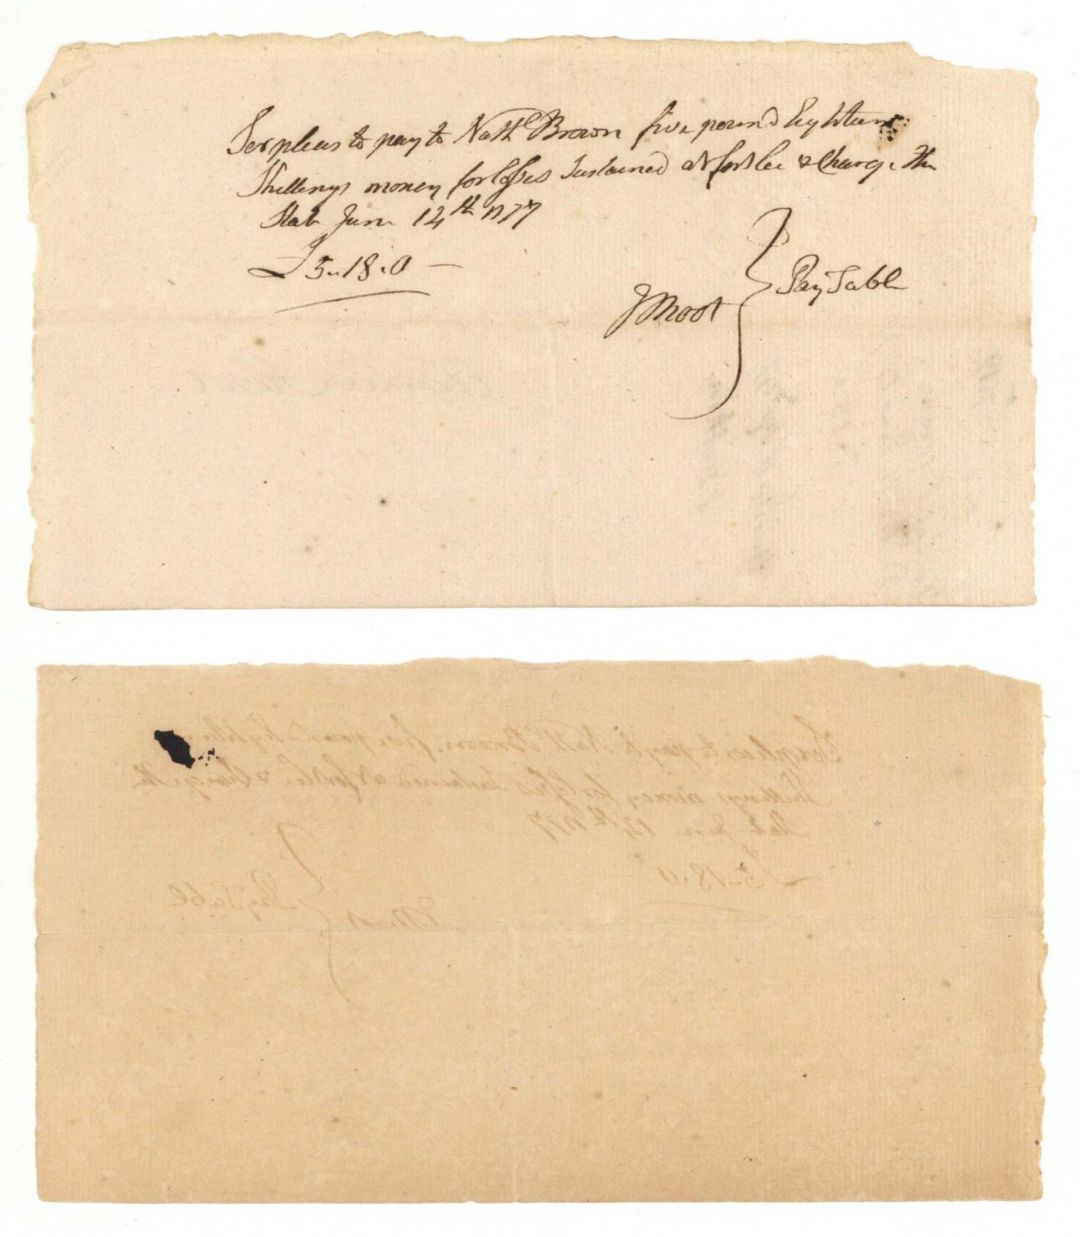 Ser pleas to pay to Nath.ll Brown five pound Eighteen
Shillings money for losses Sustained at fort lee & Charge the
Stat June 14th 1777
£5..18..0 —
J Root } Pay Table